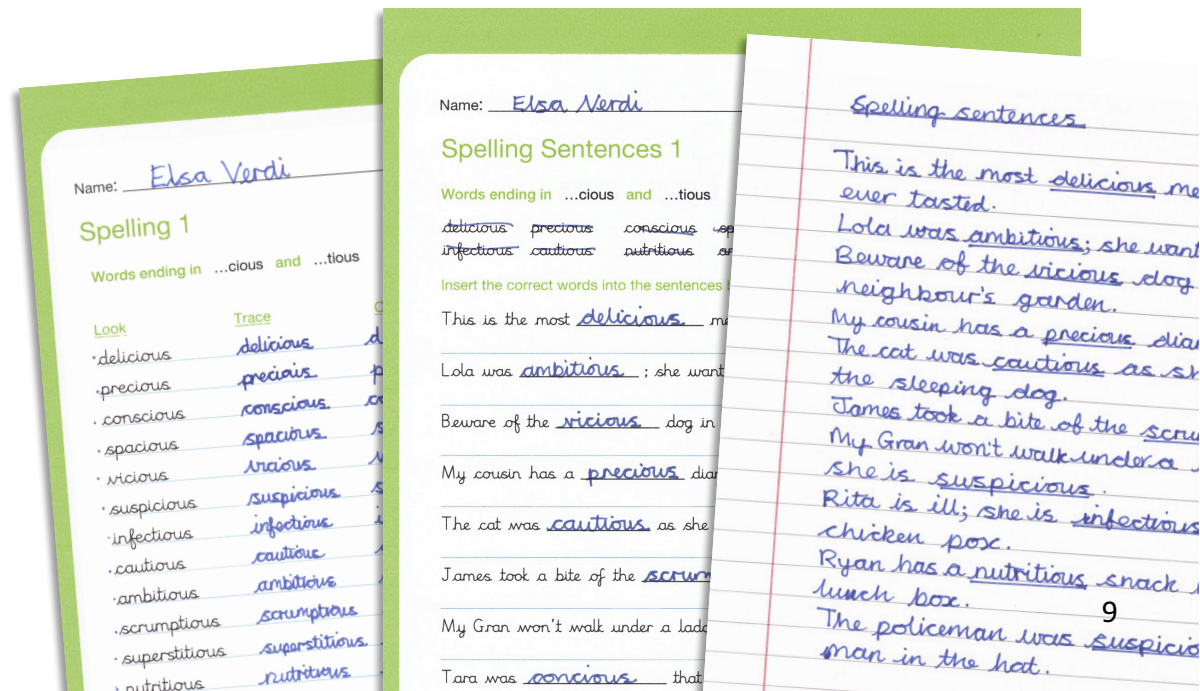 Name: Elsa Verdi
Spelling 1
Words ending in ...cious and ...tious
Look Trace
delicious delicious
precious precious
conscious conscious
spacious spacious
vicious vicious
suspicious suspicious
infectious infectious
cautious cautious
ambitious ambitious
scrumptious scrumptious
superstitious superstitious
nutritious nutritious
Name: Elsa Verdi
Spelling Sentences 1
Words ending in ...cious and ...tious
delicious precious conscious
infectious cautious nutritious
Insert the correct words into the sentences
This is the most delicious me
Lola was ambitious ; she want
Beware of the vicious dog in
My cousin has a precious diam
The cat was cautious as she
James took a bite of the scrum
My Gran won't walk under a ladd
Tara was concious that
Spelling sentences
This is the most delicious me
ever tasted.
Lola was ambitious; she want
Beware of the vicious dog
neighbour's garden.
My cousin has a precious diam
The cat was cautious as sh
the sleeping dog.
James took a bite of the scru
My Gran won't walk under a
she is suspicious.
Rita is ill; she is infectious
chicken pox.
Ryan has a nutritious snack
lunch box.
The policeman was suspicio
man in the hat.
9